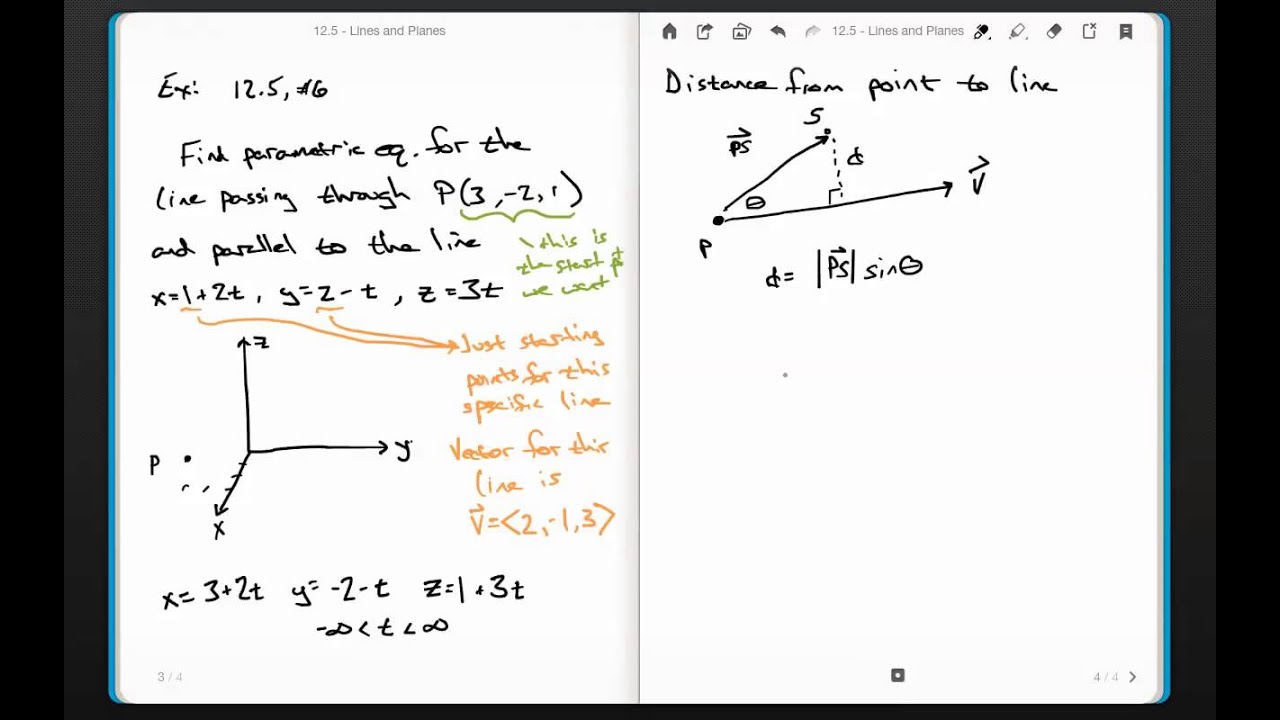 12.5 - Lines and Planes
Ex: 12.5, #6
Find parametric eq. for the
line passing through P(3,-2,1)
and parallel to the line
x=1+2t, y=2-t, z=3t
this is
the start pt
we want
z
y
x
P
Just starting
points for this
specific line
Vector for this
line is
v⃗=<2,-1,3>
x=3+2t y=-2-t z=1+3t
-∞<t<∞
3 / 4
12.5 - Lines and Planes
Distance from point to line
S
PS⃗
d
θ
v⃗
P
d= |PS⃗| sinθ
4 / 4